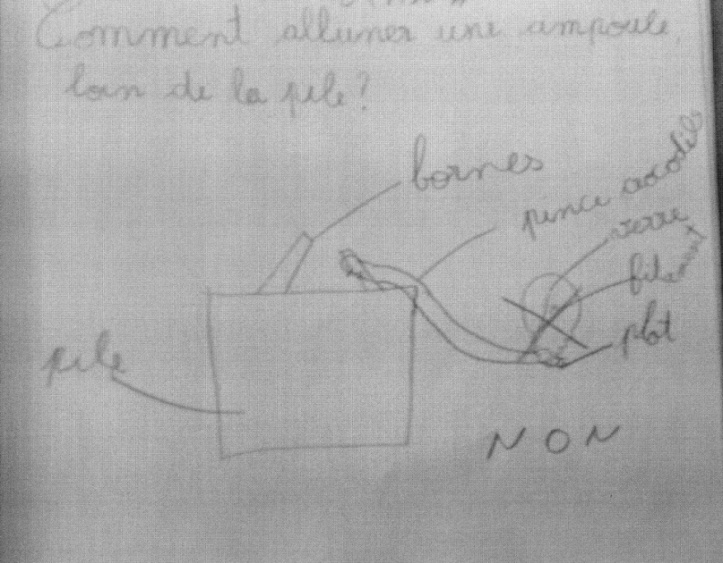 Comment allumer une ampoule,
loin de la pile?
bornes
pince crocodile
verre
filament
plot
pile
NON